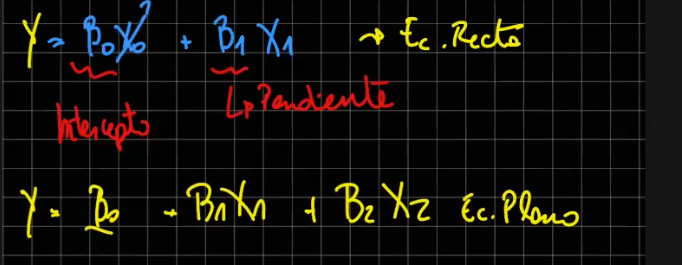 Y = B₀X₀ + B₁ X₁ → Ec. Recta
Intercepto
↳ Pendiente
Y = B₀ + B₁X₁ + B₂ X₂ Ec. Plano